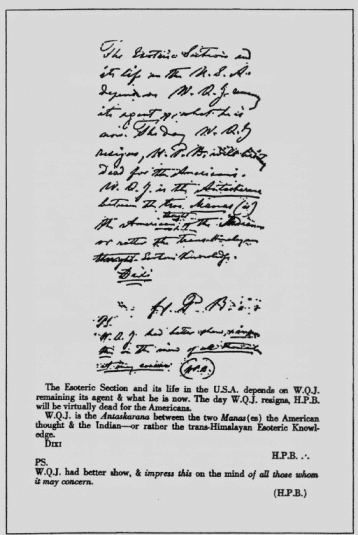 The Esoteric Section and
its life in the U.S.A.
depends on W.Q.J.
its agent & what he is
now. The day W.Q.J
resigns, H.P.B. will be
dead for the Americans.
W.Q.J. is the Antaskarana
between the two Manas(es)
the American thought & the Indian
or rather the trans-Himalayan
Esoteric Knowledge.
Dixi
H.P.B.
PS.
W.Q.J. had better show, & impress
this on the mind of all those whom
it may concern. (H.P.B.)
The Esoteric Section and its life in the U.S.A. depends on W.Q.J.
remaining its agent & what he is now. The day W.Q.J. resigns, H.P.B.
will be virtually dead for the Americans.
W.Q.J. is the Antaskarana between the two Manas(es) the American
thought & the Indian—or rather the trans-Himalayan Esoteric Knowl-
edge.
DIXI
H.P.B. ∴
PS.
W.Q.J. had better show, & impress this on the mind of all those whom
it may concern.
(H.P.B.)